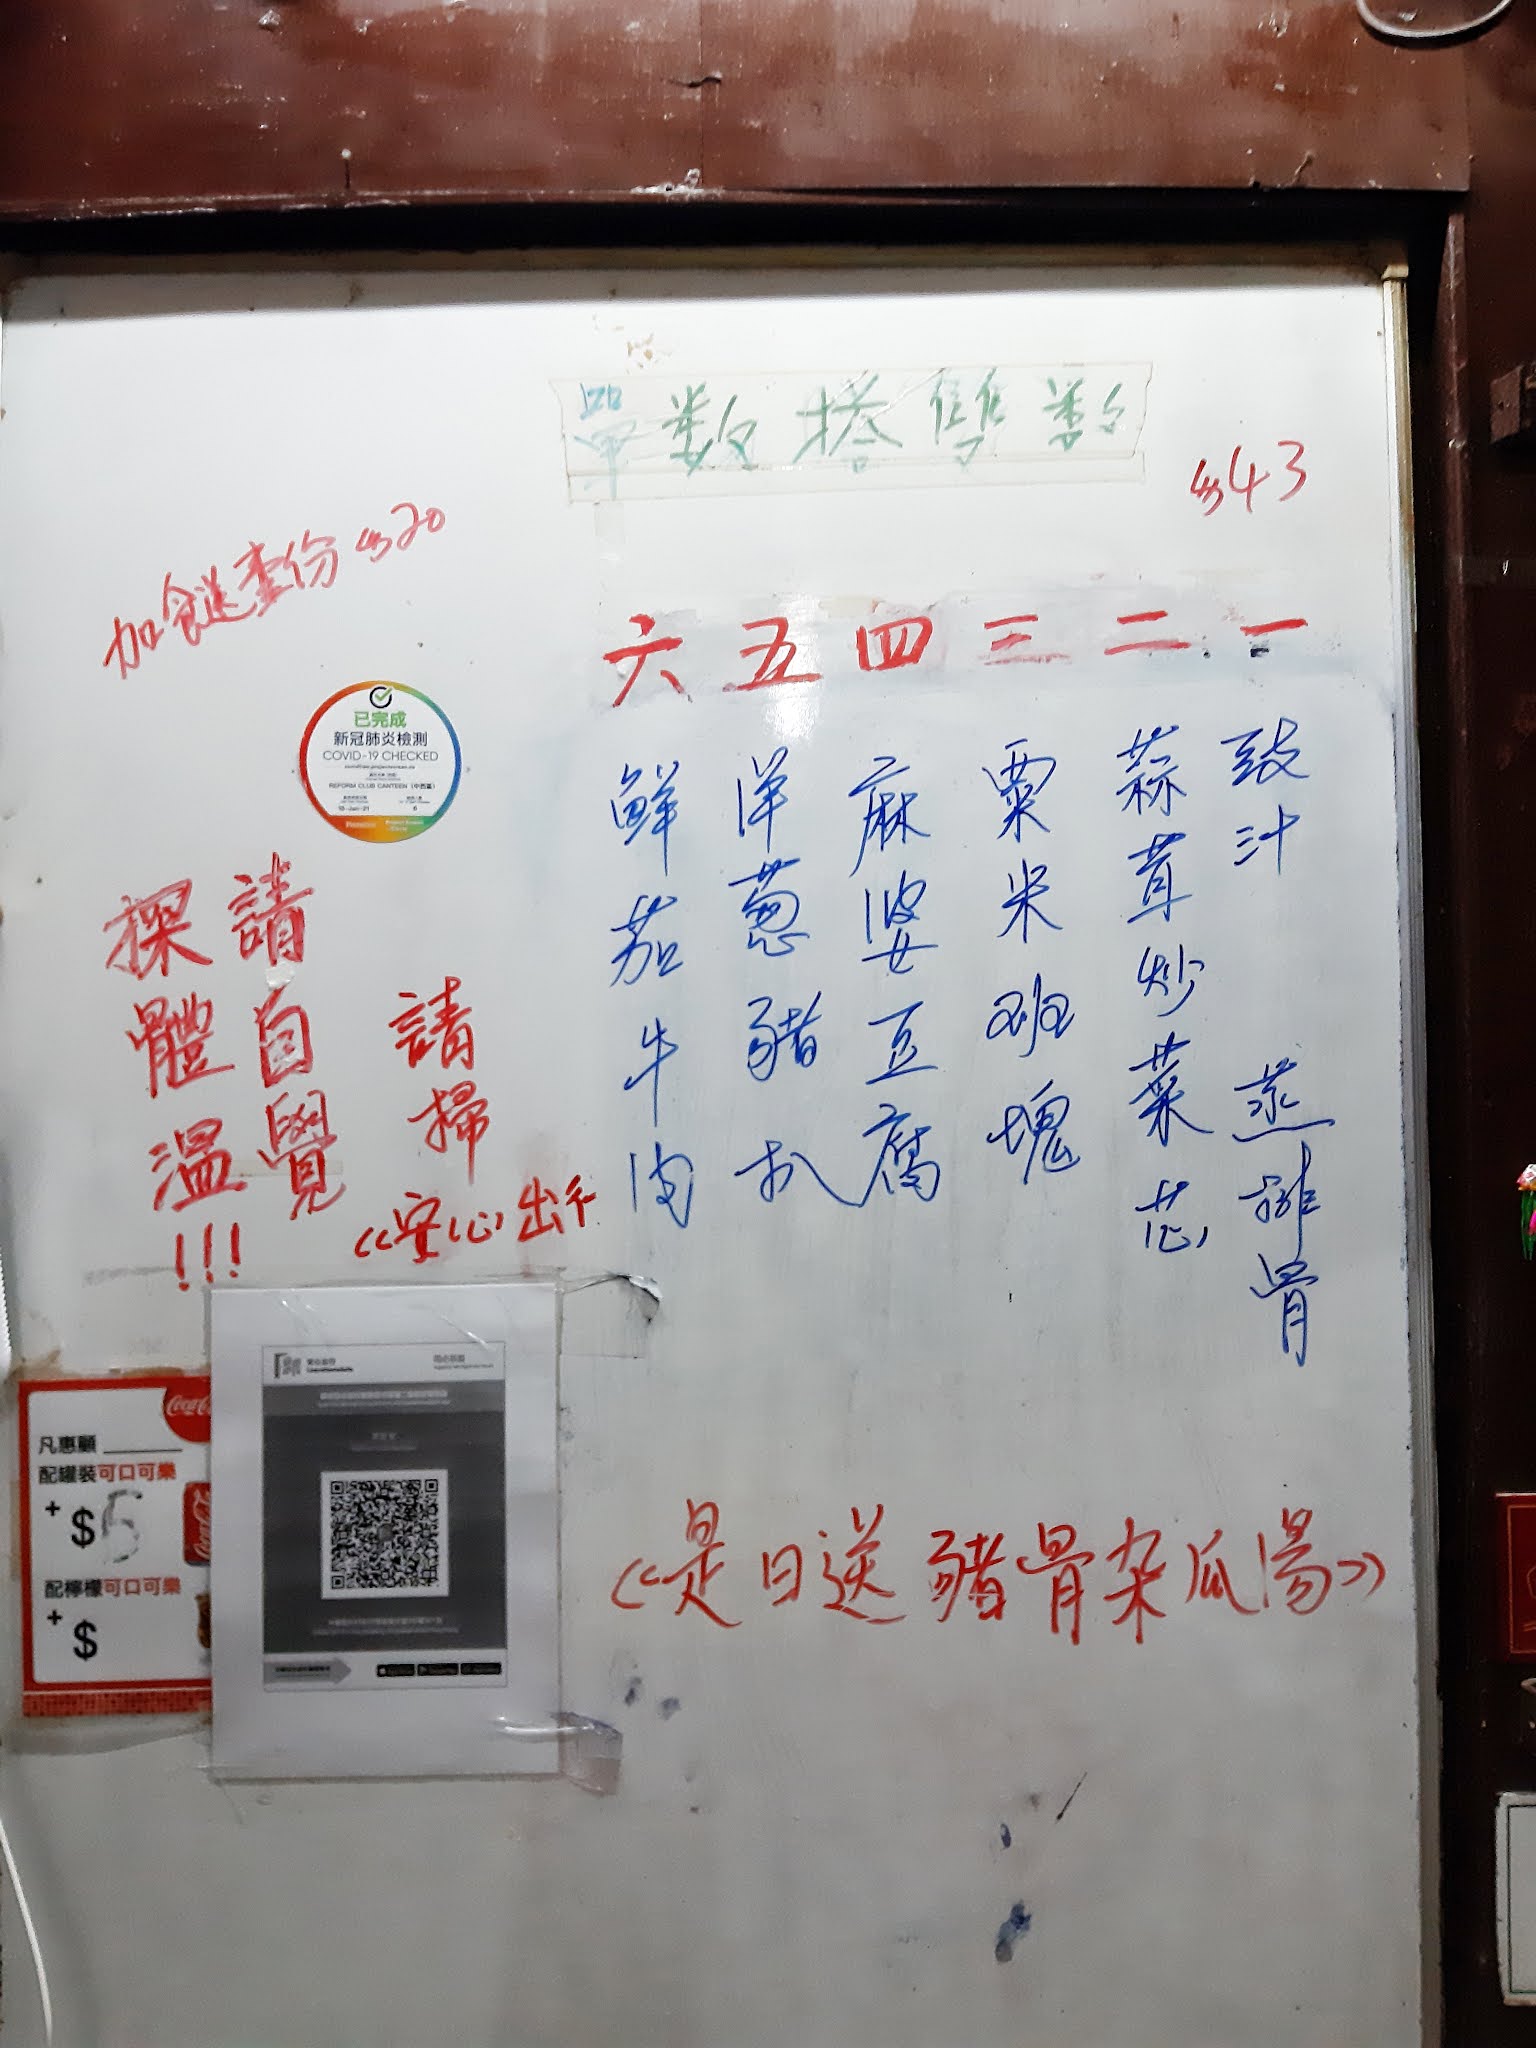 單數搭雙數
$43
加餸壹份$20
一 豉汁蒸排骨
二 蒜茸炒菜芯
三 粟米班塊
四 麻婆豆腐
五 洋葱豬扒
六 鮮茄牛肉
已完成
新冠肺炎檢測
COVID-19 CHECKED
REFORM CLUB CANTEEN (中西區)
請自覺
探體溫
!!!
請掃
《安心出行
凡惠顧
配罐裝可口可樂
+$5
配檸檬可口可樂
+$
《是日送豬骨杂瓜湯》